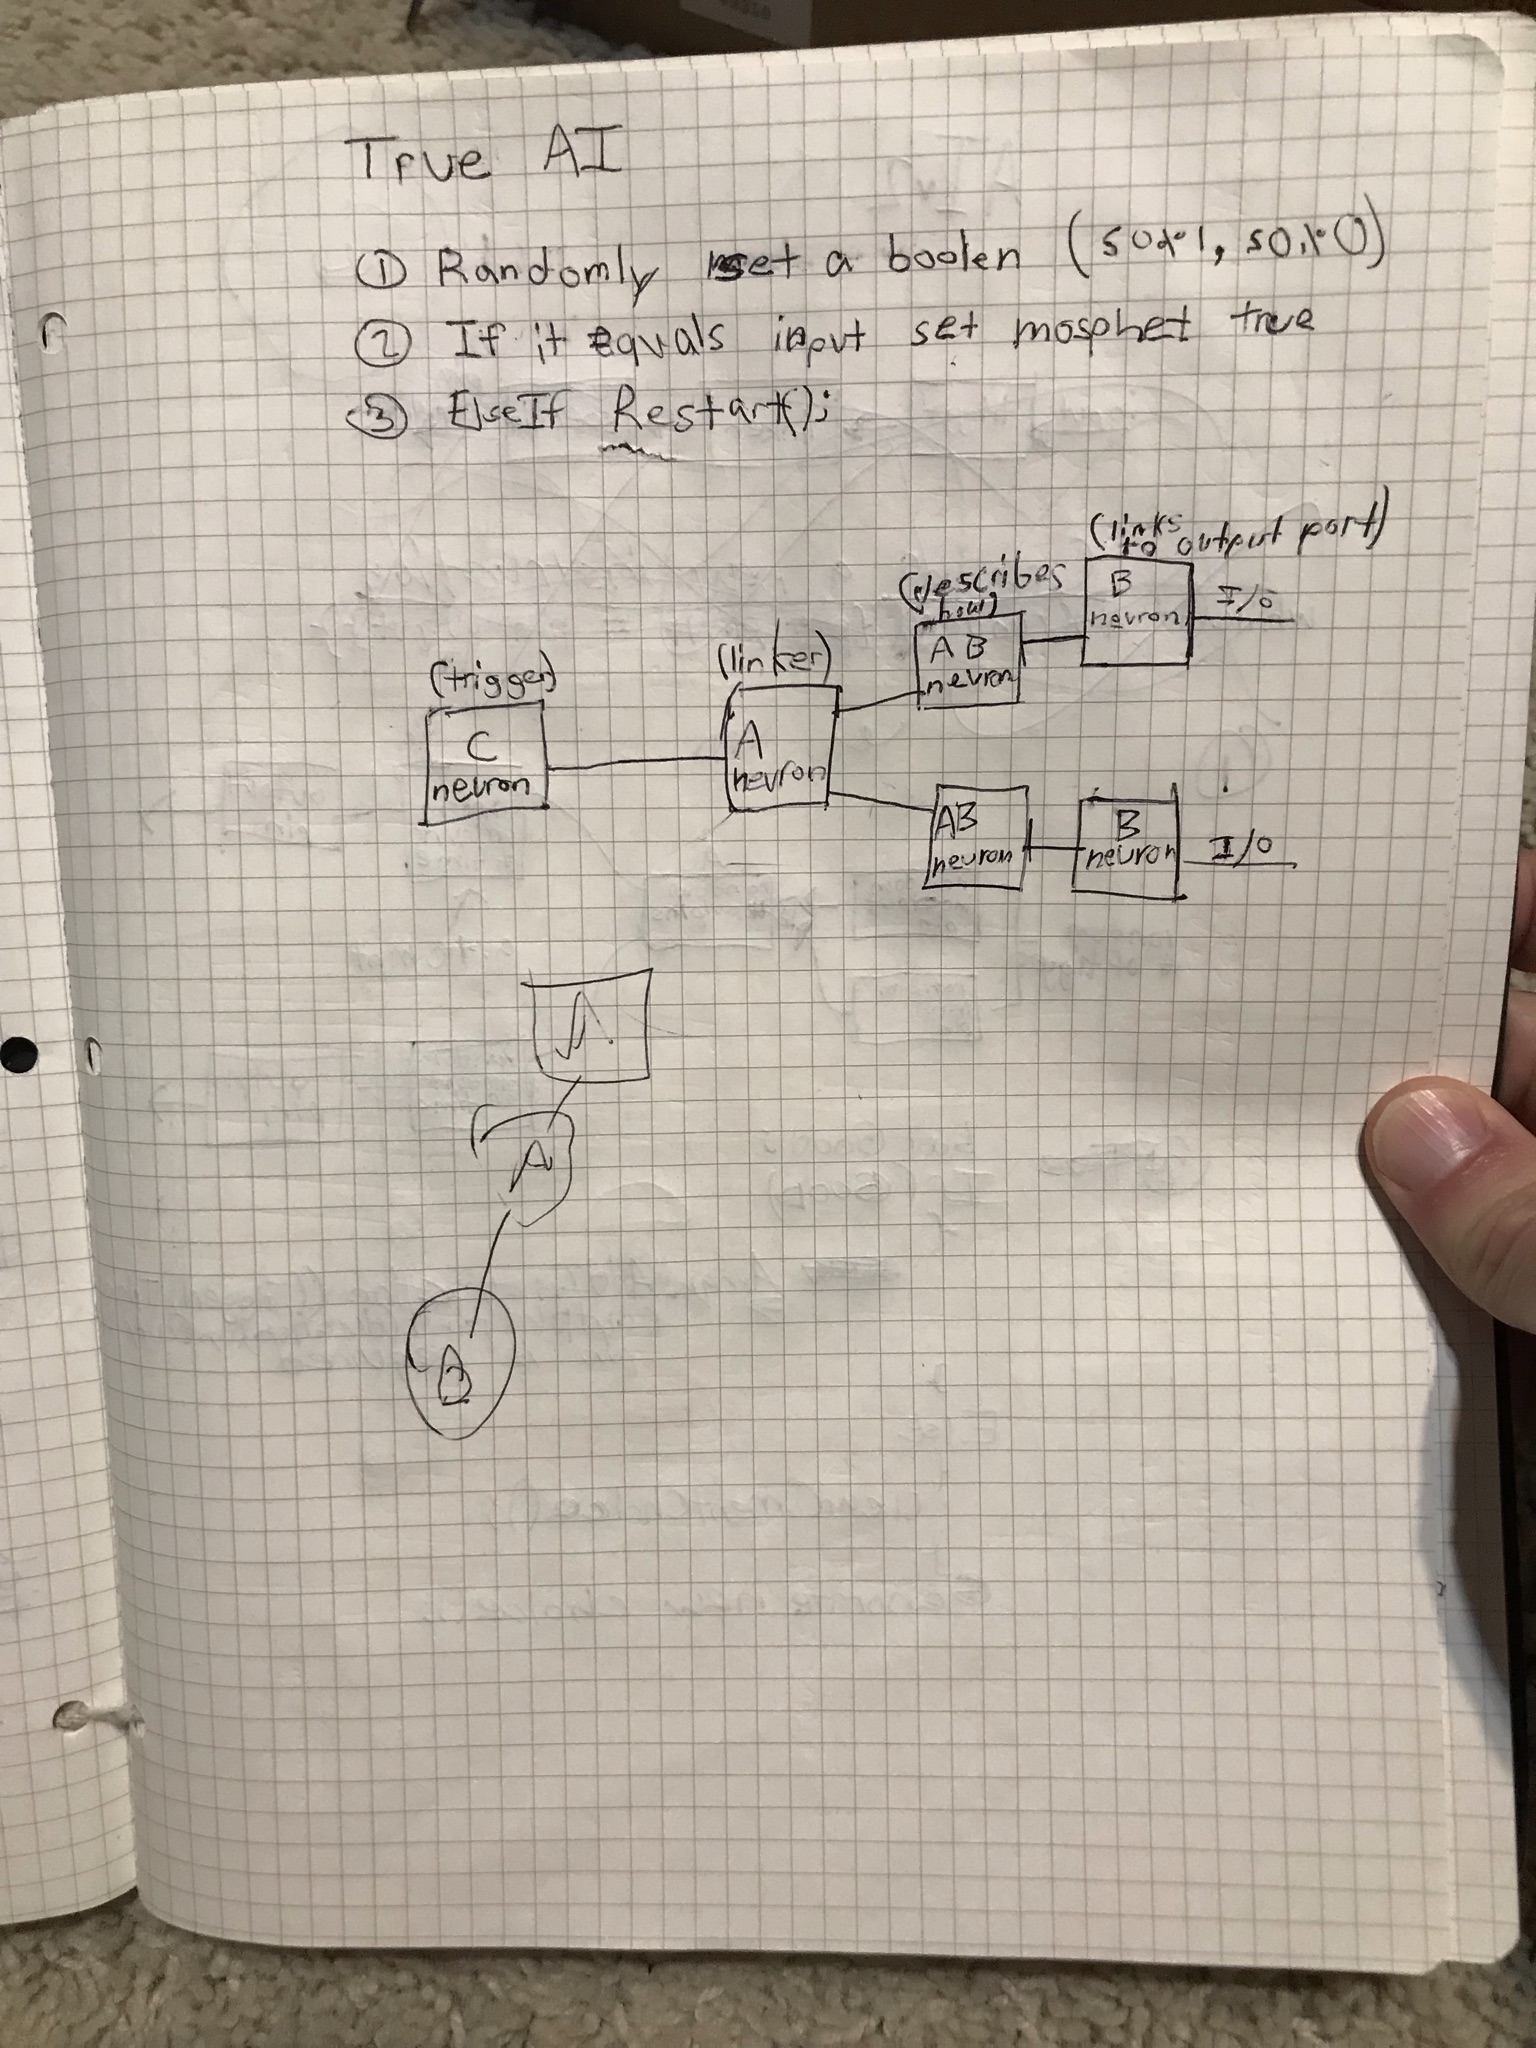 True AI
① Randomly set a boolen (50%1, 50%0)
② If it Equals input set mosphet true
③ ElseIf Restart();
(links to output port)
(describes how)
B neuron
I/o
AB neuron
(linker)
(trigger)
A neuron
C neuron
AB neuron
B neuron
I/o
A
A
B